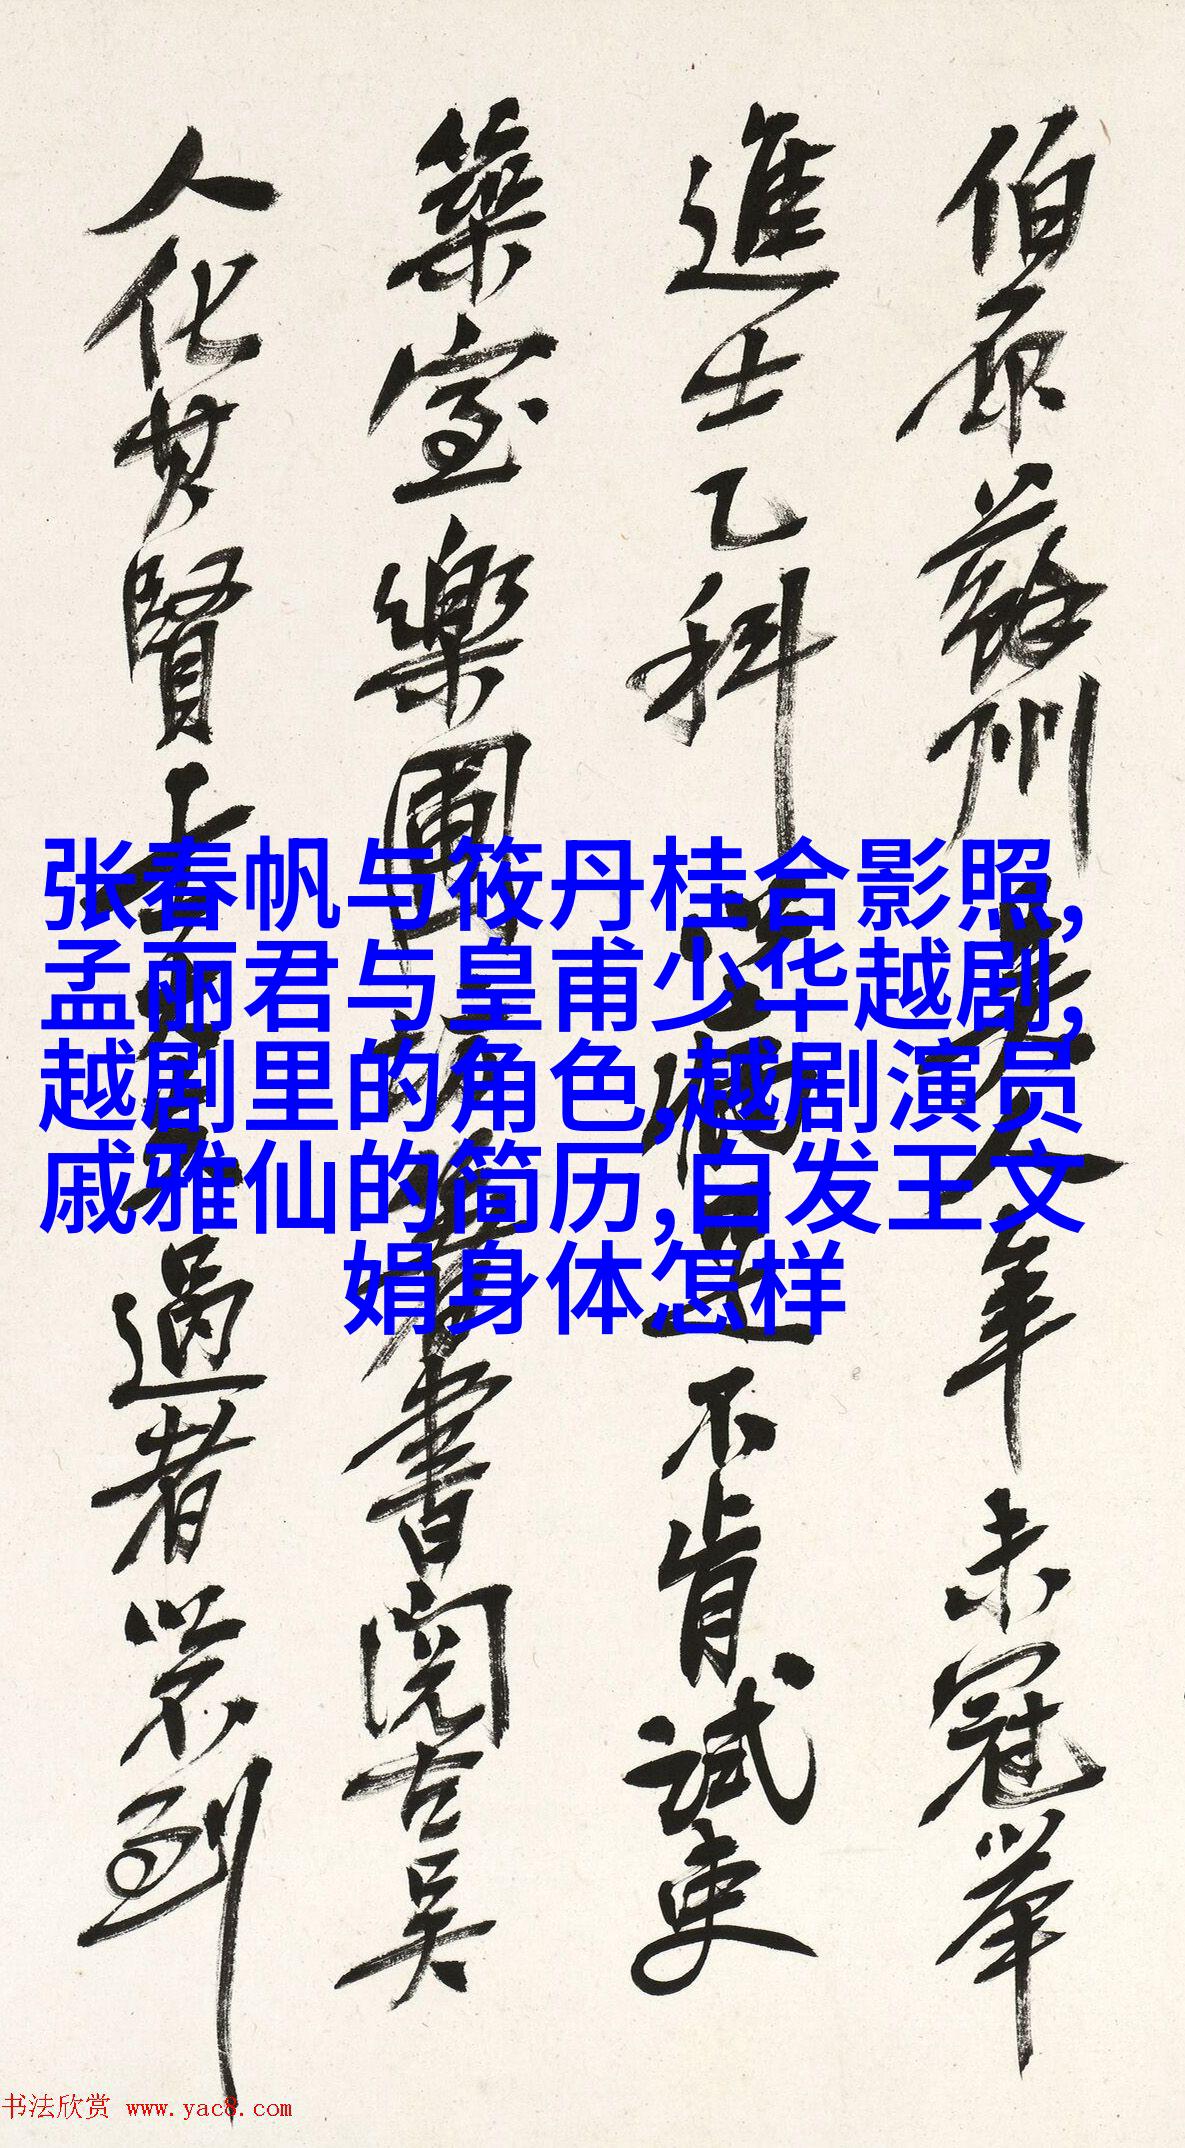 伯原蘇州吳人年未冠舉
進士乙科不肯試吏
築室樂圃坊著書閱古吳
人化其賢士過者以不到
张春帆与筱丹桂合影照,
孟丽君与皇甫少华越剧,
越剧里的角色,越剧演员
戚雅仙的简历,白发王文
娟身体怎样
书法欣赏 www.yac8.com